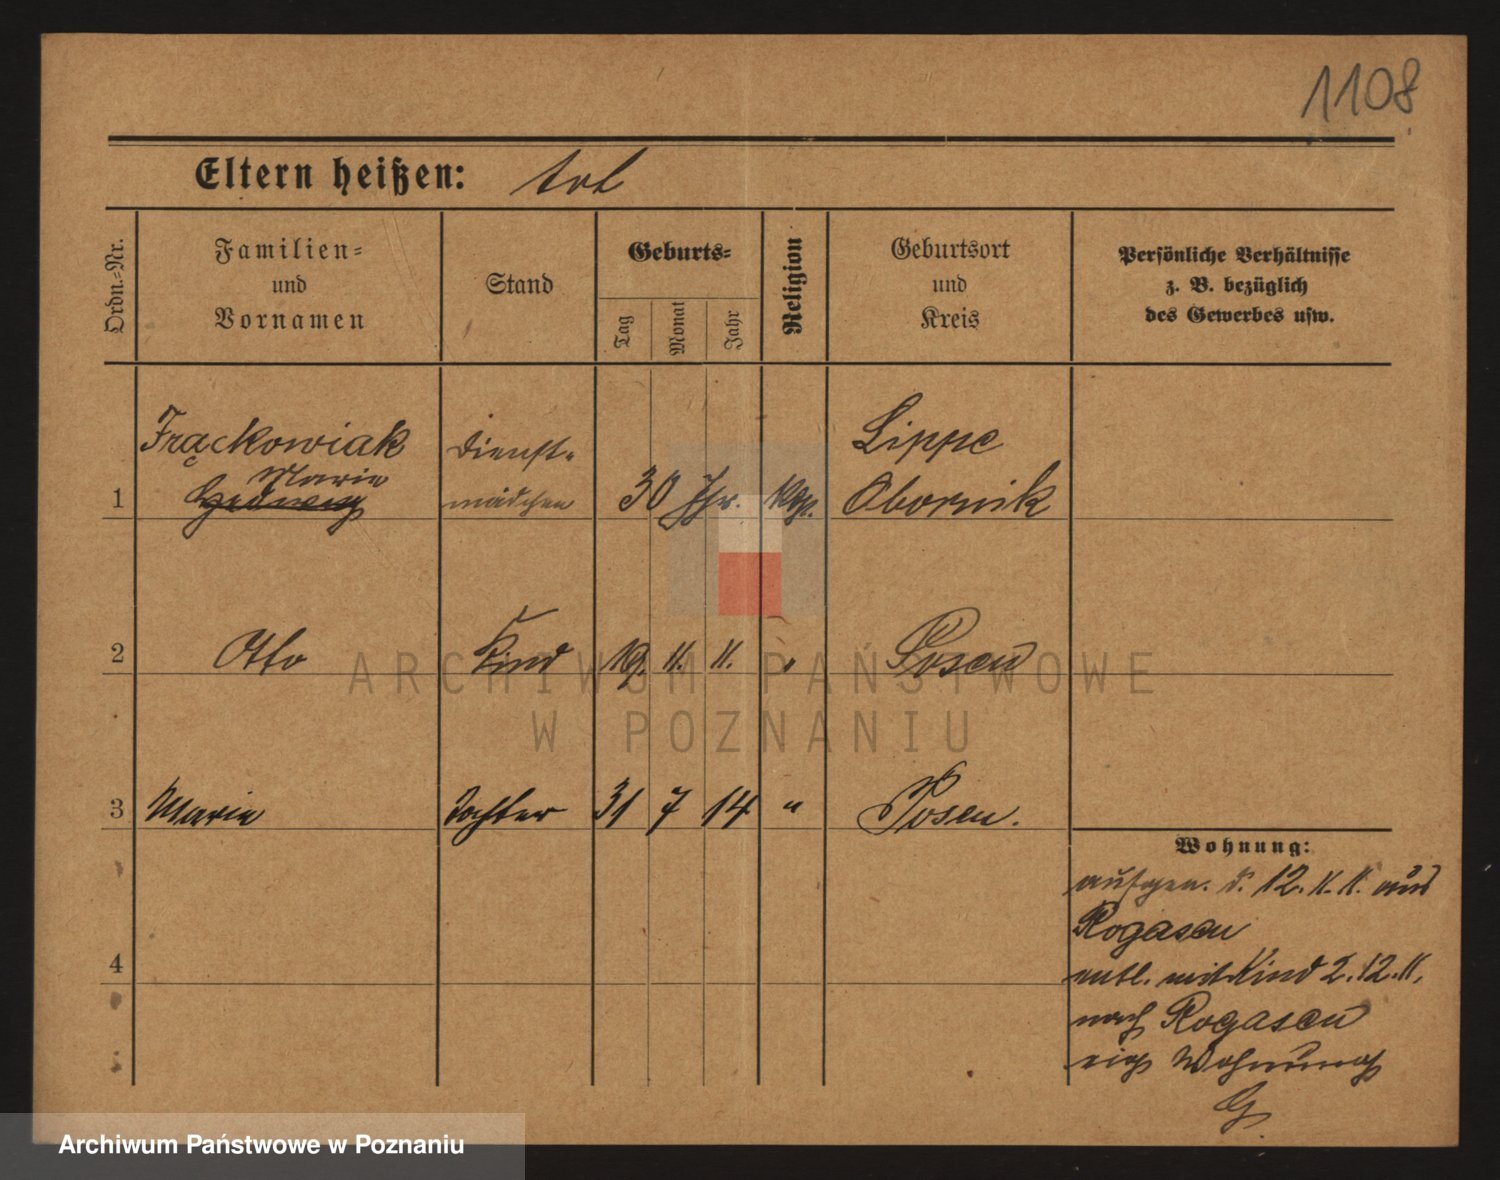 1108
Eltern heißen: tot
Ordn.=Nr.
Familien=
und
Vornamen
Stand
Geburts=
Tag
Monat
Jahr
Religion
Geburtsort
und
Kreis
Persönliche Verhältnisse
z. B. bezüglich
des Gewerbes usw.
1
Frąckowiak
Marie
Hedwig
Dienst=
mädchen
30 Jhr.
kth.
Lippe
Obornik
2
Otto
Kind
19. 11. 11.
"
Posen
3
Marie
Tochter
31 7 14
"
Posen.
Wohnung:
aufgen. d. 12. 11. 11. aus
Rogasen
4
entl. mit Kind 2. 12. 11.
nach Rogasen
Wohnung
G
ARCHIWUM PAŃSTWOWE
W POZNANIU
Archiwum Państwowe w Poznaniu